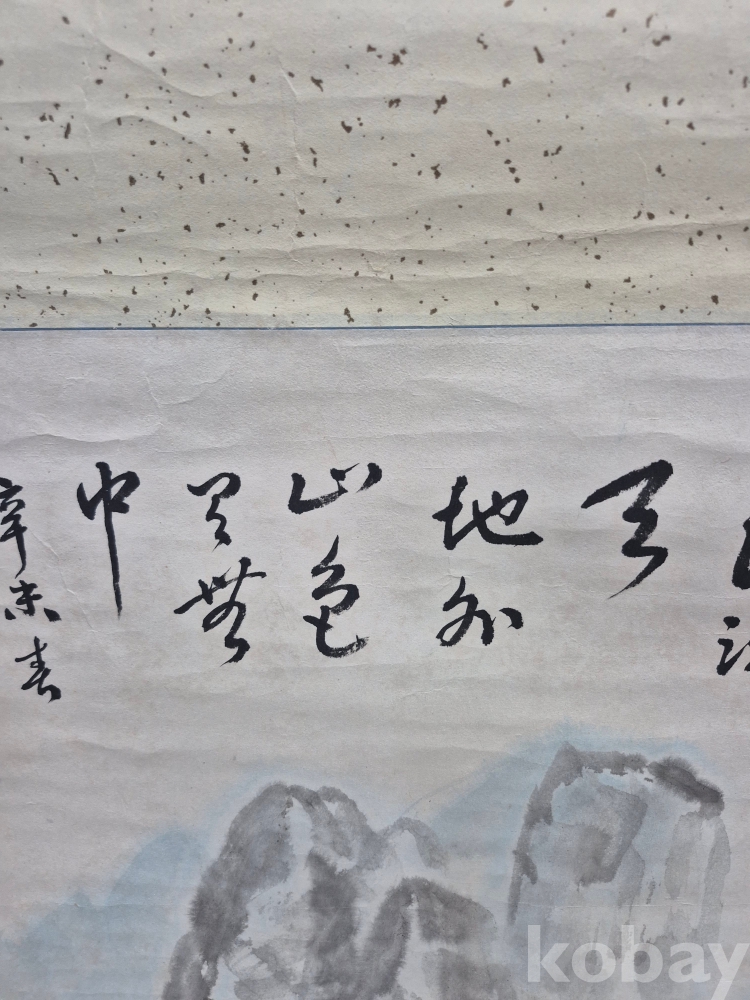 天
地外
山色
有無
中
辛未春
kobay